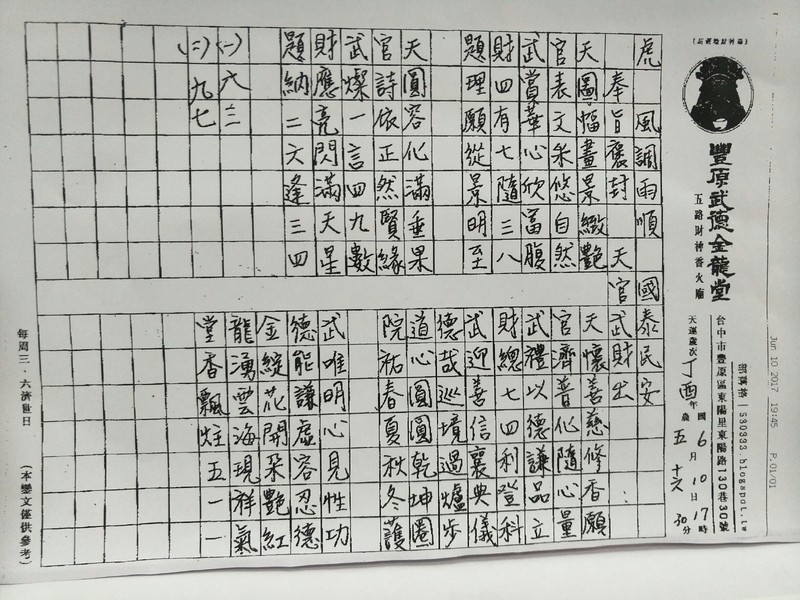 Jun 10 2017 19:45 P.01/01
豐原武德金龍堂
五路財神香火廟
部落格：530333.blogspot.tw
台中市豐原區東陽里東陽路130巷30號
天運歲次丁酉年 國6月10日17時
歲五 十六 30分
虎 風調雨順 國泰民安
奉旨褒封 天官武財出：
天圖幅畫景緻艷
官表文禾悠自然
武當華心欣富腹
財四有七隨三八
題理願從景明至
天圓容化滿垂果
官詩依正然賢緣
武燦一言四九數
財應亮閃滿天星
題納二六逢三四
(一)六三
(二)九七
天懷善慈修香願
官濟普化隨心量
武禮以德謙品立
財總七四利登科
武迎善信襄典儀
德哉巡境過爐步
道心圓圓乾坤圈
院祐春夏秋冬護
武唯明心見性功
德能謙虛容忍德
金綻花開朵艷紅
龍湧雲海現祥氣
堂香飄炷五一一
每周三．六濟世日
(本鸞文僅供參考)